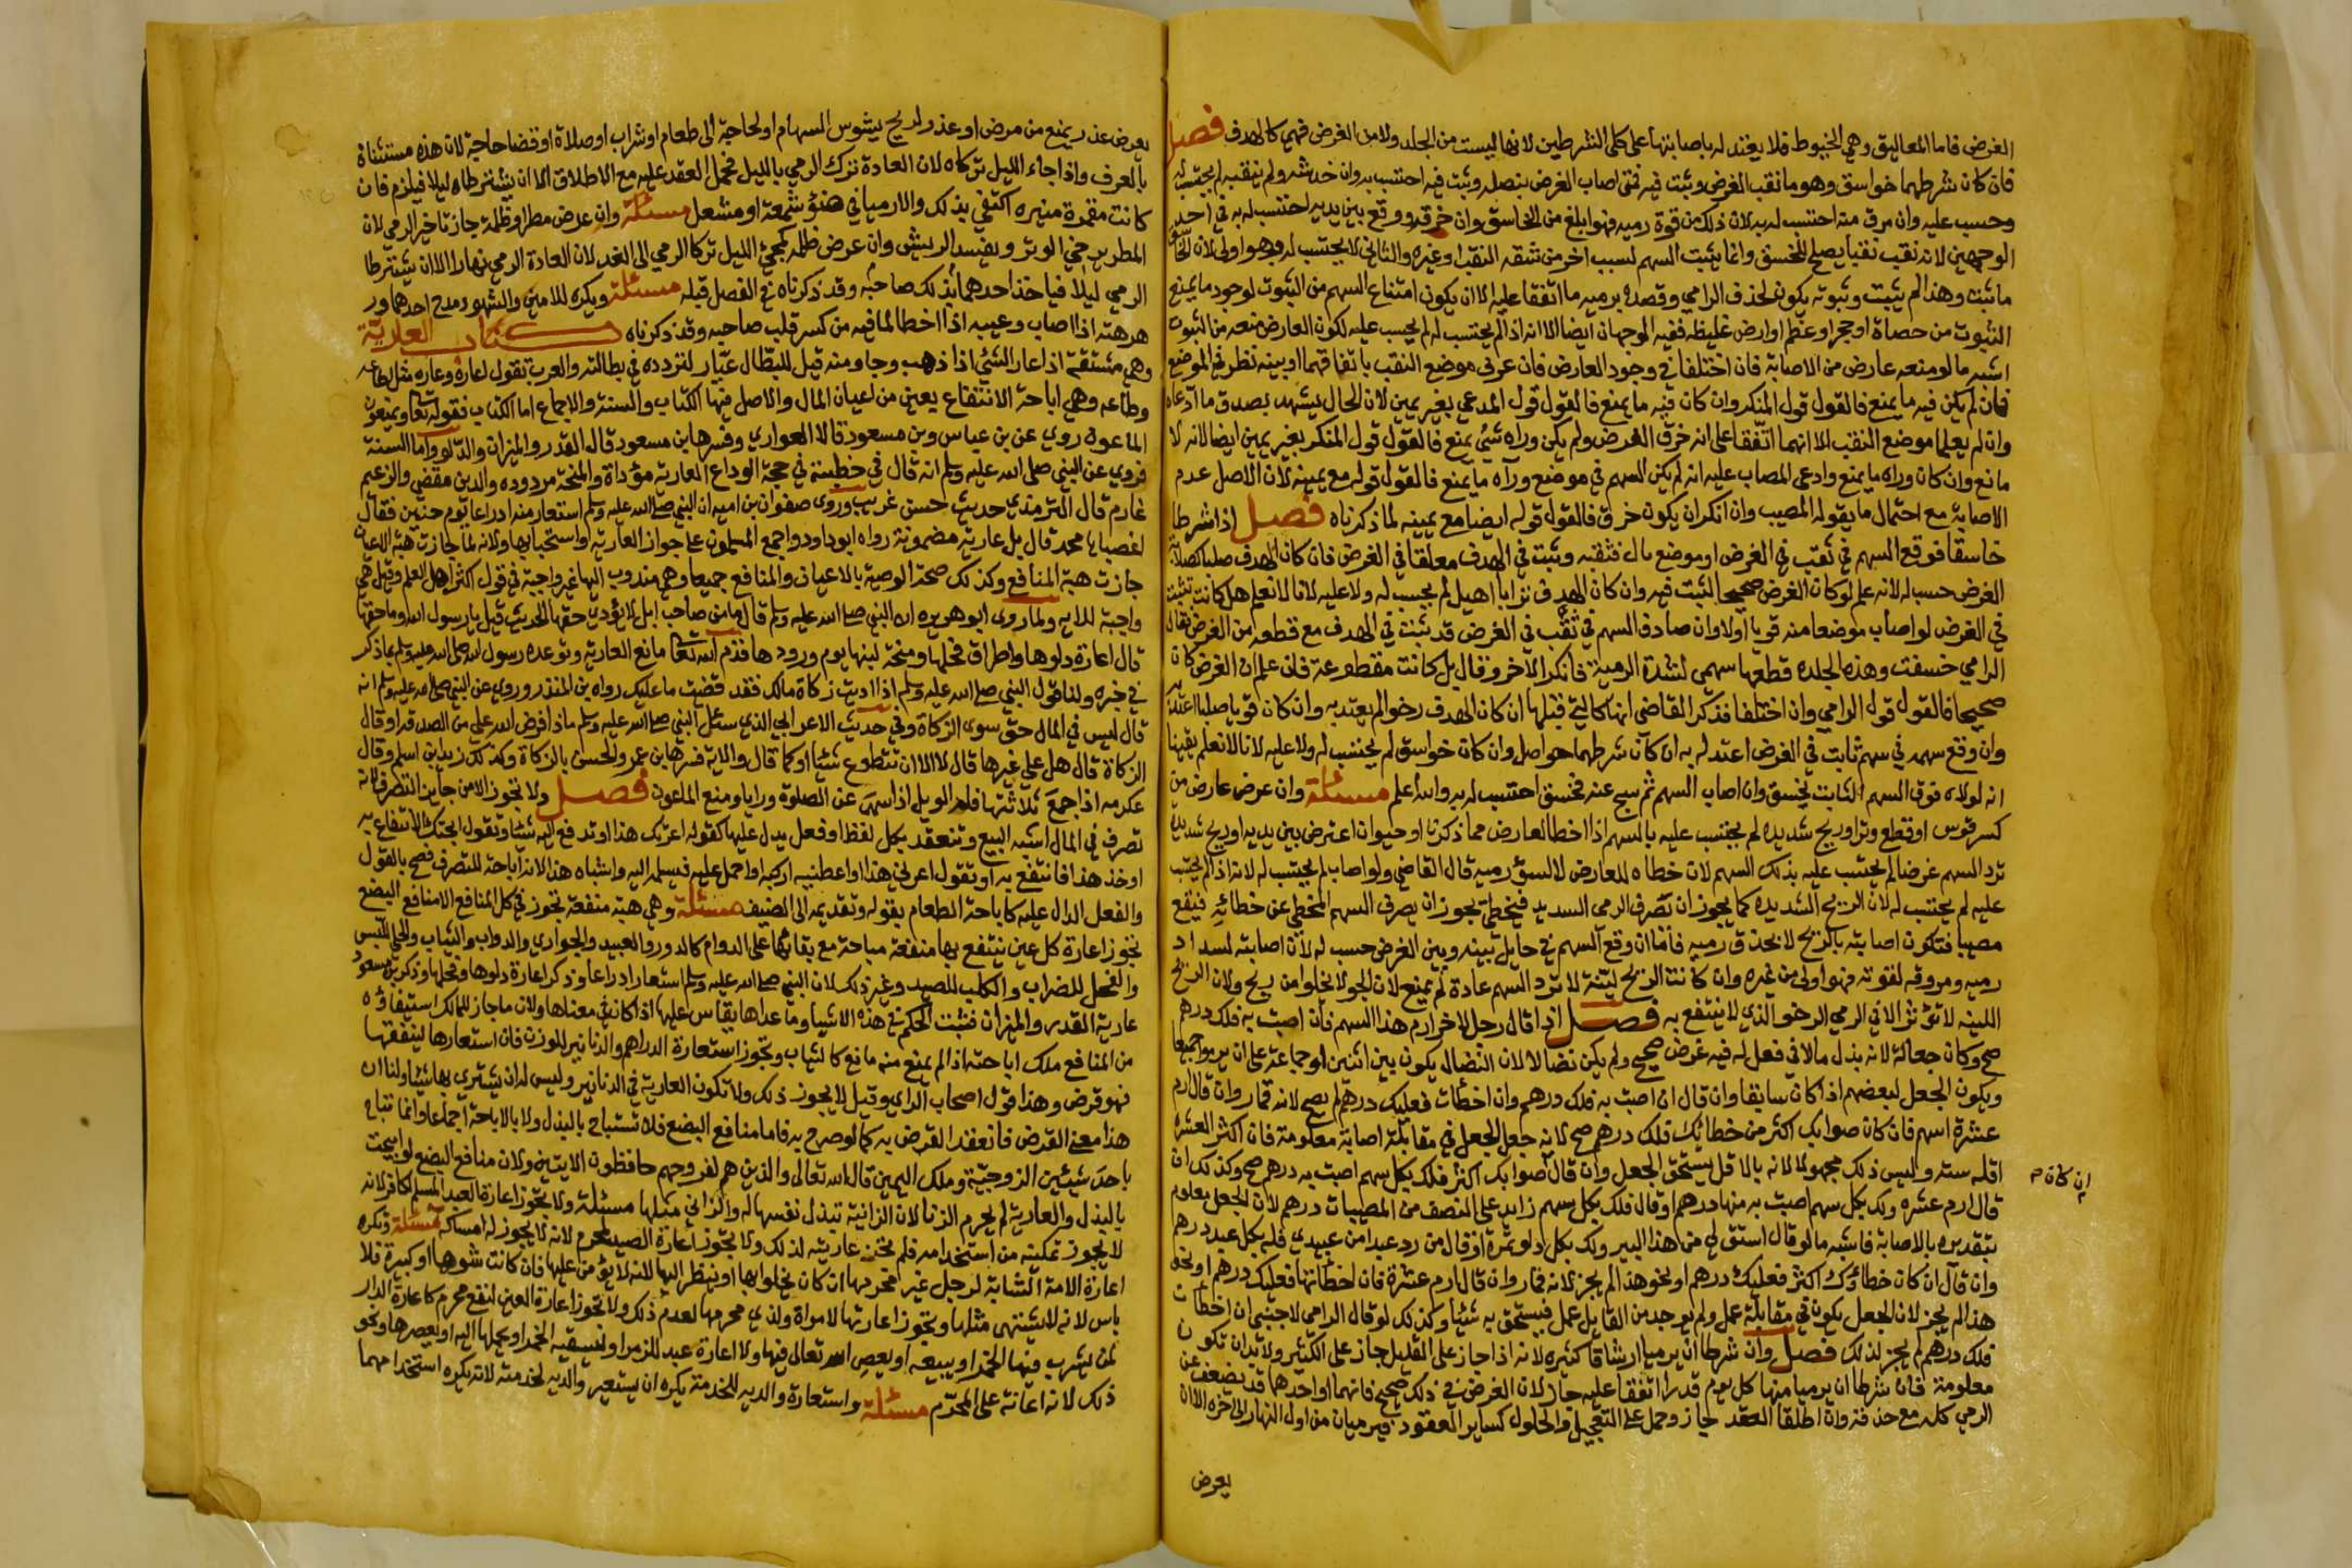 الغرض فاما المعاليق وهي الخيوط فلا يعتد له باصابتها على كلى الشرطين لانها ليست من الجلد ولا من الغرض فهي كالهدف فصل
فان كان شرطهما خواسق وهو ما نقب الغرض وثبت فيه فمتى اصاب الغرض بنصله وثبت فيه احتسب به وان خدشه ولم ينقبه لم يحتسب له
وحسب عليه وان مرق منه احتسب له به لان ذلك من قوة رميه فهو ابلغ من الخاسق وان خرقه ووقع بين يديه احتسب له به في احد
الوجهين لانه نقب نقبا يصلح للخسق وانما لم يثبت السهم لسبب اخر من شقه النقب او غيره والثاني لا يحتسب له به وهو اولى لان الخاسق
ما ثبت وهذا لم يثبت وثبوته يكون لحذف الرامي وقصده برميه ما اتفقا عليه الا ان يكون امتناع السهم من الثبوت لوجود ما يمنع
الثبوت من حصاة او حجر او عظم او ارض غليظه ففيه الوجهان ايضا الا انه اذا لم يحتسب له لم يحسب عليه لكون العارض منعه من الثبوت
اشبه ما لو منعه عارض من الاصابة فان اختلفا في وجود العارض فان عرف موضع النقب باتفاقهما او ببينه نظر في الموضع
فان لم يكن فيه ما يمنع فالقول قول المنكر وان كان فيه ما يمنع فالقول قول المدعي بغير يمين لان الحال يشهد بصدق ما ادعاه
وان لم يعلما موضع النقب الا انهما اتفقا على انه خرق الغرض ولم يكن وراه شئ يمنع فالقول قول المنكر بغير يمين ايضا لانه لا
مانع وان كان وراه ما يمنع وادعى المصاب عليه انه لم يكن السهم في موضع وراه ما يمنع فالقول قوله مع يمينه لان الاصل عدم
الاصابة مع احتمال ما يقوله المصيب وان انكر ان يكون خرق فالقول قوله ايضا مع يمينه لما ذكرناه فصل اذا شرطا
خاسقا فوقع السهم في ثقب في الغرض او موضع بال فثقبه وثبت في الهدف معلقا في الغرض فان كان الهدف صلبا كصلابة
الغرض حسب له لانه علم لو كان الغرض صحيحا لثبت فيه وان كان الهدف ترابا اهيل لم يحسب له ولا عليه لانا لا نعلم هل كانت تثبت
في الغرض لو اصاب موضعا منه قويا اولا وان صادف السهم في ثقب في الغرض قد ثبت في الهدف مع قطعه من الغرض فقال
الرامي خسقت وهذه الجلده قطعها سهمى لشدة الرمية فانكر الاخر وقال بل كانت مقطوعة فان علم ان الغرض كان
صحيحا فالقول قول الرامي وان اختلفا فذكر القاضي انها كالتي قبلها ان كان الهدف رخوا لم يعتد به وان كان قويا صلبا اعتد به
وان وقع سهمه في سهم ثابت في الغرض اعتد له به ان كان شرطهما حواصل وان كان خواسق لم يحتسب له ولا عليه لانا لا نعلم يقينا
انه لولاه فوق السهم الثابت لخسق وان اصاب السهم ثم سبح عنه فخسق احتسب له به والله اعلم مسئلة وان عرض عارض من
كسر قوس او قطع وتر او ريح شديده لم يحتسب عليه بالسهم اذا اخطا العارض مما ذكرنا او حيوان اعترض بين يديه او ريح شديدة
ترد السهم عرضا لم يحتسب عليه بذلك السهم لان خطاه للعارض لا لسؤ رميه قال القاضي ولو اصاب لم يحتسب له لانه اذا لم يحتسب
عليه لم يحتسب له لان الريح الشديده كما يجوز ان تصرف الرمي السديد فيخطئ يجوز ان يصرف السهم المخطئ عن خطائه فيقع
مصيبا فتكون اصابته بالريح لا بحذق رميه فاما ان وقع السهم في حايل بينه وبين الغرض حسب له لان اصابته لسداد
رميه ومروقه لقوته فهو اولى من غيره وان كانت الريح لينة لا ترد السهم عادة لم يمنع لان الجو لا يخلوا من ريح ولان الريح
اللينه لا تؤثر الا في الرمي الرخو الذي لا ينتفع به فصل اذا قال رجل لاخر ارم هذا السهم فان اصبت به فلك درهم
صح وكان جعالة لانه بذل مالا في فعل له فيه غرض صحيح ولم يكن نضالا لان النضال يكون بين اثنين او جماعة على ان يرموا جميعا
ويكون الجعل لبعضهم اذا كان سابقا وان قال ان اصبت به فلك درهم وان اخطأت فعليك درهم لم يصح لانه قمار وان قال ارم
عشرة اسهم فان كان صوابك اكثر من خطائك فلك درهم صح لانه جعل الجعل في مقابلة اصابة معلومة فان اكثر العشرة
اقله سته وليس ذلك مجهولا لانه بالاقل يستحق الجعل وان قال صوابك اكثر فلك بكل سهم اصبت به درهم صح وكذلك ان
ان كان م
قال ارم عشره ولك بكل سهم اصبت به منها درهم او قال فلك بكل سهم زايد على النصف من المصيبات درهم لان الجعل معلوم
بتقديره بالاصابة فاشبه ما لو قال استق لي من هذا البير ولك بكل دلو تمرة او قال من رد عبدا من عبيدي فله بكل عبد درهم
وان قال ان كان خطاؤك اكثر فعليك درهم او نحو هذا لم يجز لانه قمار وان قال ارم عشرة فان اخطأتها فعليك درهم او نحو
هذا لم يجز لان الجعل يكون في مقابلة عمل ولم يوجد من القايل عمل فيستحق به شئيا وكذلك لو قال الرامي لاجنبي ان اخطأت
فلك درهم لم يجز لذلك فصل وان شرطا ان يرميا ارشاقا كثيره لانه اذا جاز على القليل جاز على الكثير ولا بد ان تكون
معلومة فان شرطا ان يرميا منها كل يوم قدرا اتفقا عليه جاز لان الغرض في ذلك صحيح فانهما او احدهما قد يضعف عن
الرمي كله مع حذقه وان اطلقا العقد جاز وحمل على التعجيل والحلول كساير العقود فيرميان من اول النهار الى اخره الا ان
يعرض
يعرض عذر يمنع من مرض او عذر او ريح يشوش السهام او لحاجة الى طعام او شراب او صلاة او قضا حاجة لان هذه مستثناة
بالعرف واذا جاء الليل تركاه لان العادة ترك الرمي بالليل فحمل العقد عليه مع الاطلاق الا ان يشترطاه ليلا فيلزم فان
كانت مقمرة منيره اكتفي بذلك والا رميا في ضوء شمعة او مشعل مسئلة وان عرض مطر او ظلمة جاز تاخير الرمي لان
المطر يرخي الوتر ويفسد الريش وان عرض ظلمه كمجئ الليل تركا الرمي الى الغد لان العادة الرمي نهارا الا ان يشترطا
الرمي ليلا فياخذ احدهما بذلك صاحبه وقد ذكرناه في الفصل قبله مسئلة ويكره للامين والشهود مدح احدهما
هزهته اذا اصاب وعيبه اذا اخطا لما فيه من كسر قلب صاحبه وقد ذكرناه كتاب العارية
وهي مشتقة اذا عار الشئ اذا ذهب وجا ومنه قيل للبطال عيار لتردده في بطالته والعرب تقول اعاره وعاره مثل اطاعه
وطاعه وهي اباحة الانتفاع بعين من اعيان المال والاصل فيها الكتاب والسنة والاجماع اما الكتاب فقوله تعا ويمنعون
الماعون روي عن بن عباس وبن مسعود قالا العواري وفسرها بن مسعود قال القدر والميزان والدلو واما السنة
فروي عن النبي صلى الله عليه وسلم انه قال في خطبته في حجة الوداع العارية مؤداة والمنحة مردوده والدين مقضي والزعيم
غارم قال الترمذي حديث حسن غريب وروى صفوان بن اميه ان النبي صلى الله عليه وسلم استعار منه ادراعا يوم حنين فقال
اغصبا يا محمد قال بل عارية مضمونة رواه ابو داود واجمع المسلمون على جواز العارية واستحبابها ولانه لما جازت هبة الاعيان
جازت هبة المنافع وكذلك صحة الوصية بالاعيان والمنافع جميعا وهي مندوب اليها غير واجبة في قول اكثر اهل العلم وقيل هي
واجبة للاية ولما روى ابو هريره ان النبي صلى الله عليه وسلم قال ما من صاحب ابل لا يؤدي حقها الحديث قيل يا رسول الله وما حقها
قال اعارة دلوها واطراق فحلها ومنحة لبنها يوم ورودها فذم الله تعا مانع العارية وتوعده رسول الله صلى الله عليه وسلم بما ذكر
في خبره ولنا قول النبي صلى الله عليه وسلم اذا اديت زكاة مالك فقد قضيت ما عليك رواه بن المنذر وروي عن النبي صلى الله عليه وسلم انه
قال ليس في المال حق سوى الزكاة وفي حديث الاعرابي الذي سئل النبي صلى الله عليه وسلم ماذا فرض الله علي من الصدقه او قال
الزكاة قال هل علي غيرها قال لا الا ان تتطوع شئيا او كما قال والاية فسرها بن عمر والحسن بالزكاة وكذلك زيد بن اسلم وقال
عكرمه اذا جمع ثلاثتها فله الويل اذا سهى عن الصلوة ورايا ومنع الماعون فصل ولا تجوز الا من جايز التصرف لانه
تصرف في المال اشبه البيع وتنعقد بكل لفظ او فعل يدل عليها كقوله اعرتك هذا او تدفع اليه شئيا وتقول ابحتك الانتفاع به
او خذ هذا فانتفع به او تقول اعرني هذا او اعطنيه اركبه او احمل عليه فيسلمه اليه واشباه هذا لانه اباحة للتصرف فصح بالقول
والفعل الدال عليه كاباحة الطعام بقوله وتقديمه الى الضيف مسئلة وهي هبة منفعة تجوز في كل المنافع الا منافع البضع
تجوز اعارة كل عين ينتفع بها منفعة مباحة مع بقائها على الدوام كالدور والعبيد والجواري والدواب والثياب والحلي للبس
والفحل للضراب والكلب للصيد وغير ذلك لان النبي صلى الله عليه وسلم استعار ادراعا وذكر اعارة دلوها وفحلها وذكر بن مسعود
عارية القدر والميزان فثبت الحكم في هذه الاشيا وما عداها يقاس عليها اذا كان في معناها ولان ما جاز للمالك استيفاؤه
من المنافع ملك اباحته اذا لم يمنع منه مانع كالثياب وتجوز استعارة الدراهم والدنانير للوزن فان استعارها لينفقها
فهو قرض وهذا قول اصحاب الراي وقيل لا يجوز ذلك ولا تكون العارية في الدنانير وليس له ان يشتري بها شئيا ولنا ان
هذا معنى القرض فانعقد القرض به كما لو صرح به فاما منافع البضع فلا تستباح بالبذل ولا بالاباحة اجماعا وانما تباح
باحد شيئين الزوجية وملك اليمين قال الله تعالى والذين هم لفروجهم حافظون الايتين ولان منافع البضع لو ابيحت
بالبذل والعارية لم يحرم الزنا لان الزانية تبذل نفسها له والزاني مثلها مسئلة ولا تجوز اعارة العبد المسلم لكافر لانه
لا يجوز تمكينه من استخدامه فلم تجز عاريته لذلك ولا تجوز اعارة الصيد لمحرم لانه لا يجوز له امساكه مسئلة وتكره
اعارة الامة الشابة لرجل غير محرمها ان كان يخلوا بها او ينظر اليها لانه لا يؤمن عليها فان كانت شوها او كبيرة فلا
باس لانه لا يشتهى مثلها وتجوز اعارتها لامراة ولذي محرمها لعدم ذلك ولا تجوز اعارة العين لنفع محرم كاعارة الدار
لمن يشرب فيها الخمر او يبيعه او يعصي الله تعالى فيها ولا اعارة عبد للزمر او ليسقيه الخمر او يحملها اليه او يعصرها ونحو
ذلك لانه اعانة على المحرم مسئلة واستعارة والديه للخدمة يكره ان يستعير والديه لخدمته لانه يكره استخدامهما